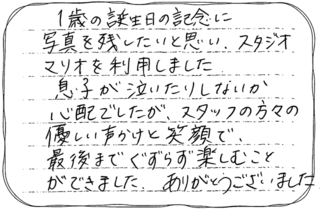 1歳の誕生日の記念に
写真を残したいと思い、スタジオ
マリオを利用しました
息子が泣いたりしないか
心配でしたが、スタッフの方々の
優しい声かけと笑顔で、
最後までぐずらず楽しむこと
ができました。ありがとうございました